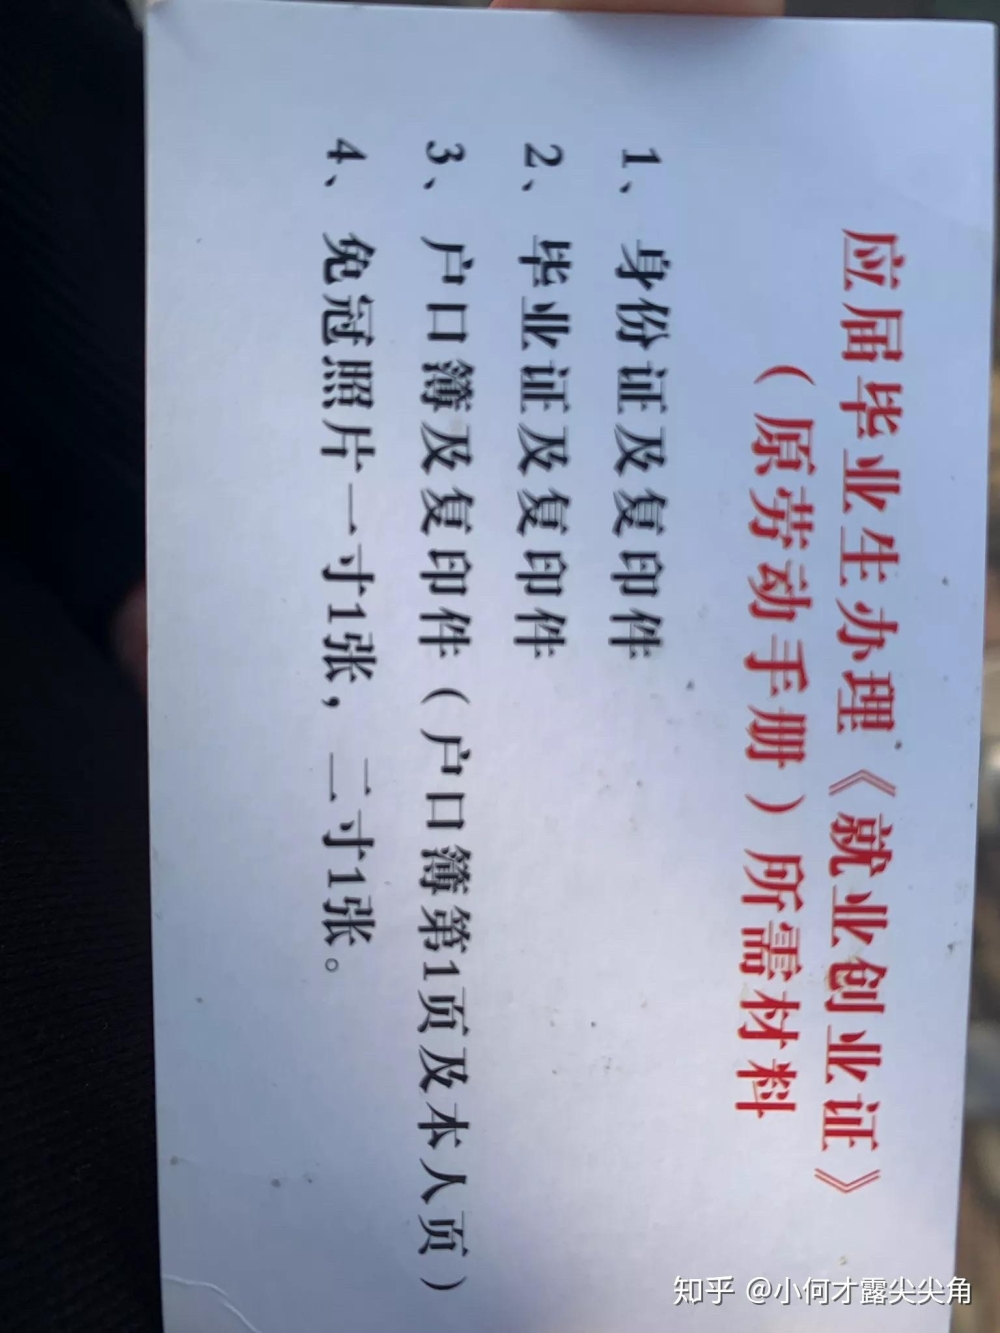 应届毕业生办理《就业创业证》
（原劳动手册）所需材料
1、身份证及复印件
2、毕业证及复印件
3、户口簿及复印件（户口簿第1页及本人页）
4、免冠照片一寸1张，二寸1张。
知乎 @小何才露尖尖角